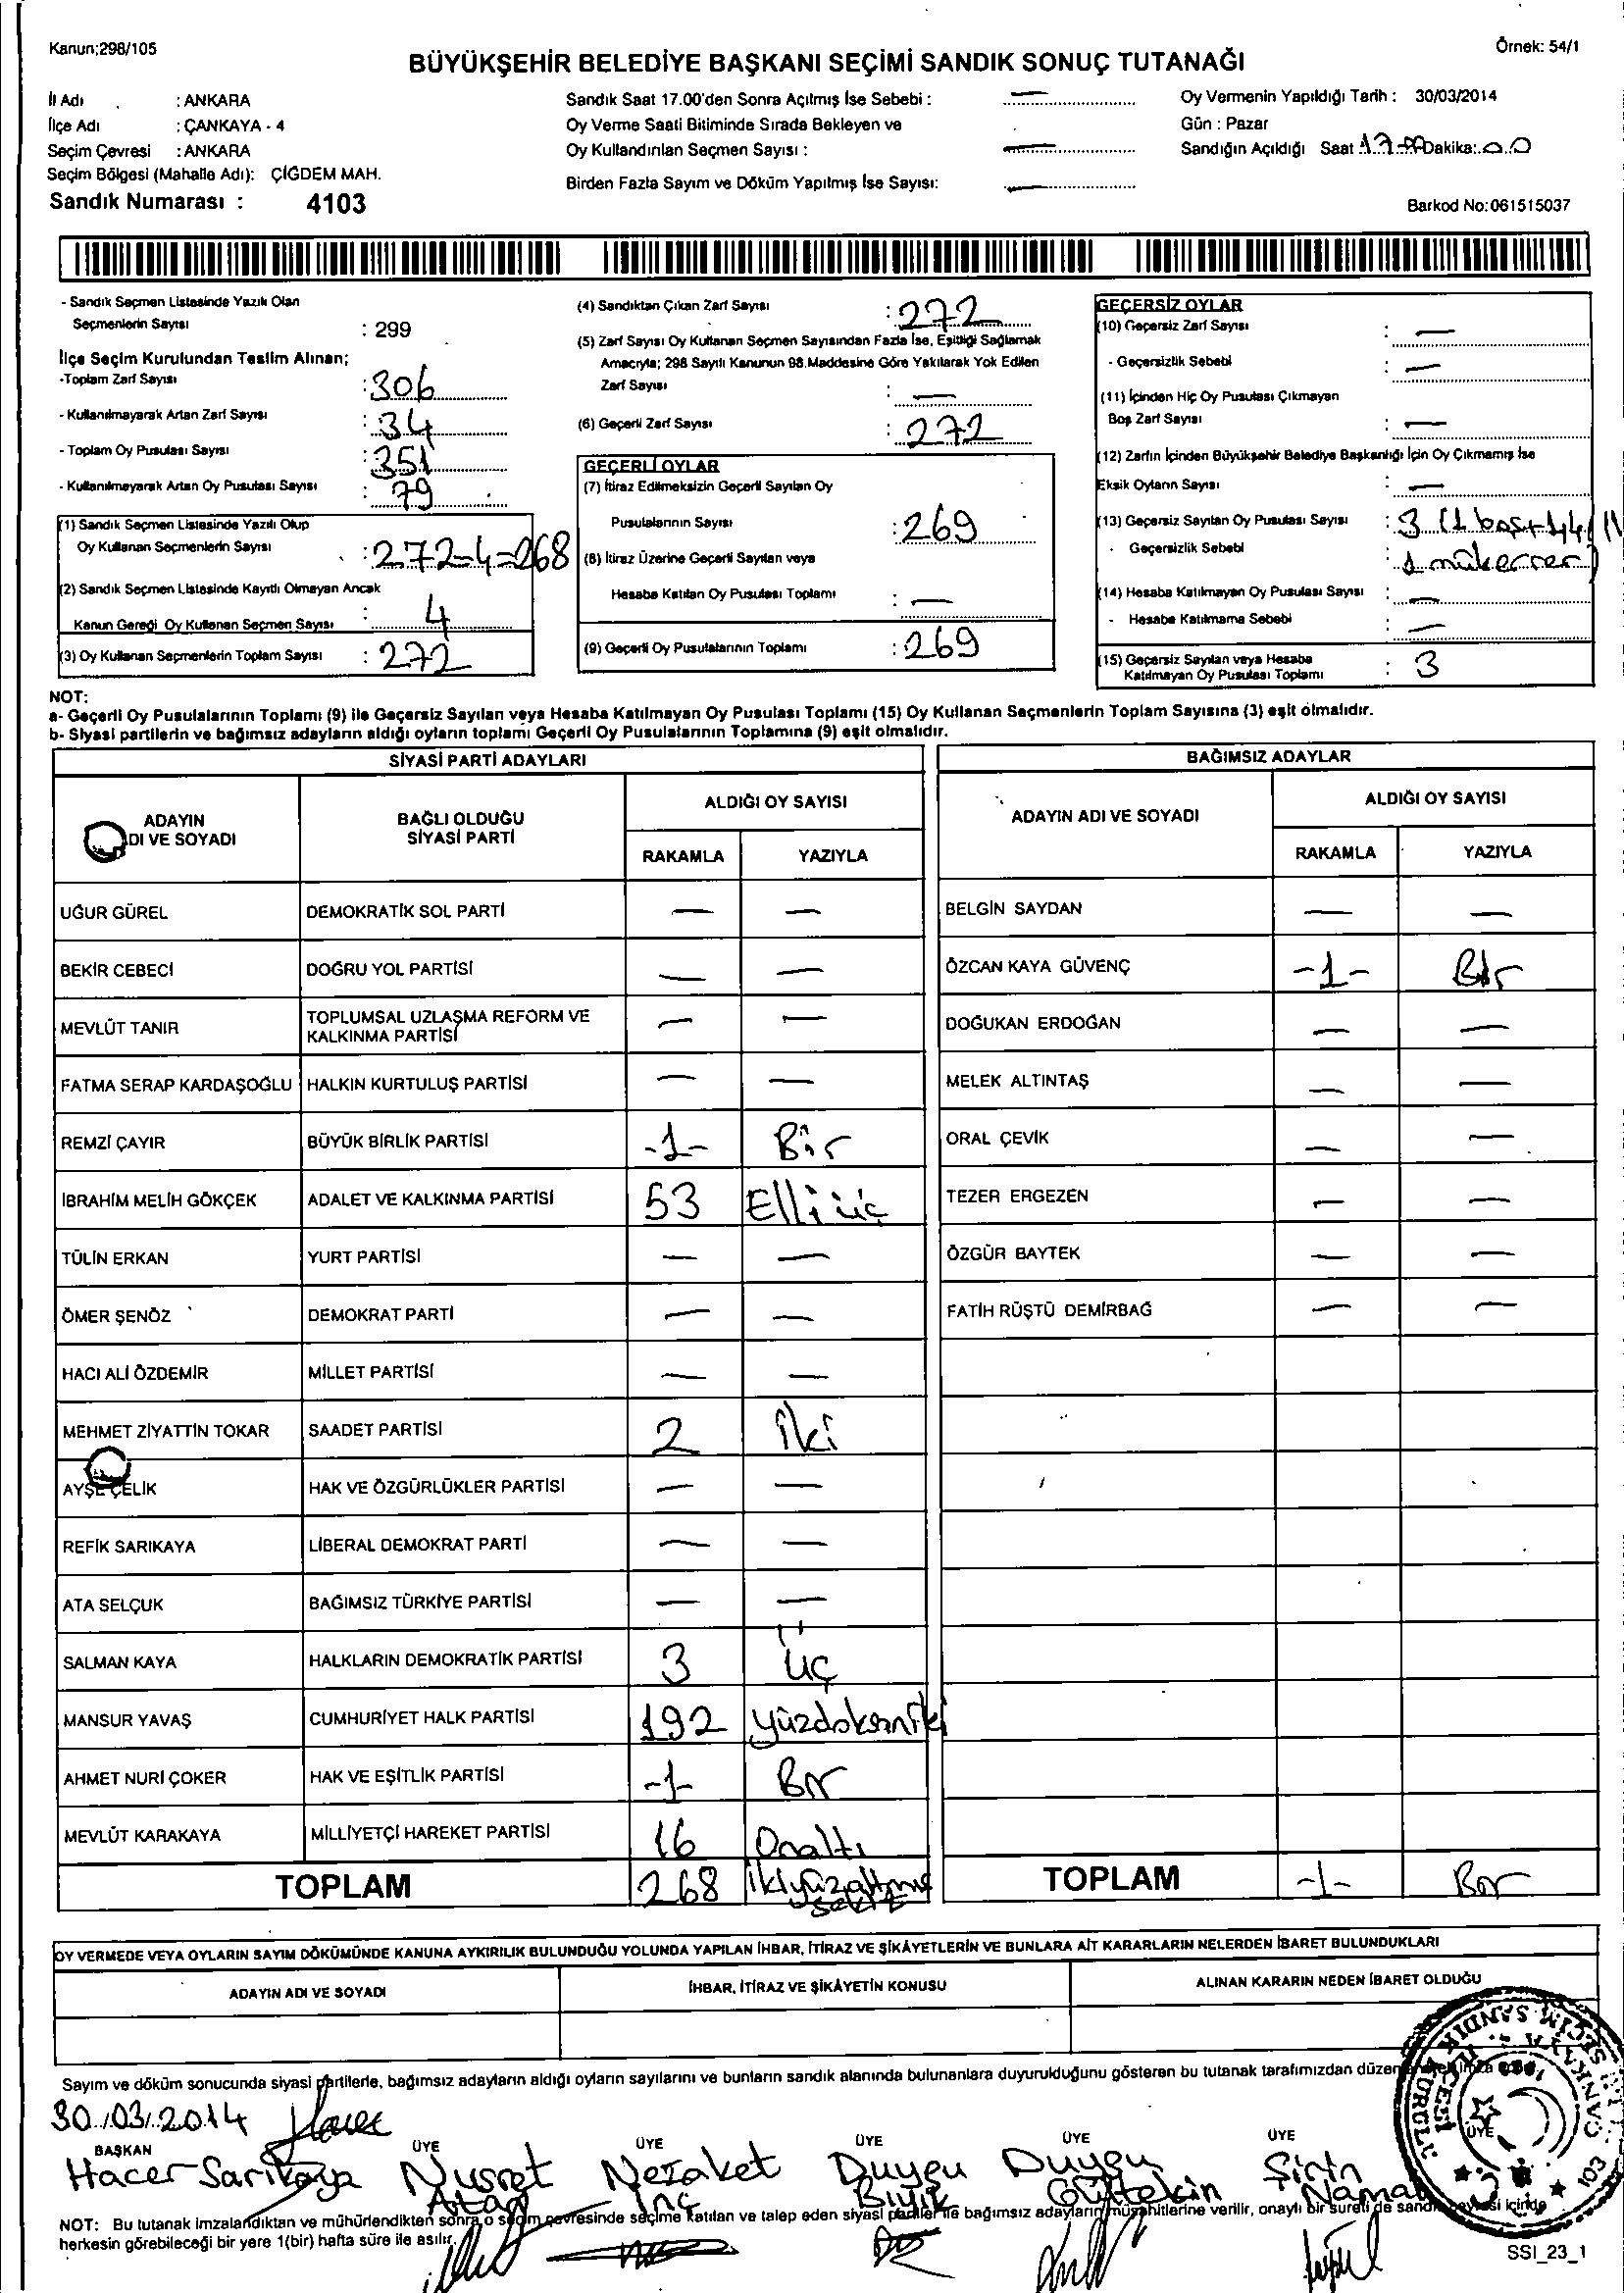 Kanun;298/105
Örnek: 54/1
BÜYÜKŞEHİR BELEDİYE BAŞKANI SEÇİMİ SANDIK SONUÇ TUTANAĞI
İl Adı : ANKARA
İlçe Adı : ÇANKAYA - 4
Seçim Çevresi : ANKARA
Seçim Bölgesi (Mahalle Adı): ÇİĞDEM MAH.
Sandık Numarası : 4103
Sandık Saat 17.00'den Sonra Açılmış İse Sebebi : —
Oy Verme Saati Bitiminde Sırada Bekleyen ve
Oy Kullandırılan Seçmen Sayısı : —
Birden Fazla Sayım ve Döküm Yapılmış İse Sayısı: —
Oy Vermenin Yapıldığı Tarih : 30/03/2014
Gün : Pazar
Sandığın Açıldığı Saat 17.00 Dakika: 00
Barkod No:061515037
- Sandık Seçmen Listesinde Yazılı Olan
Seçmenlerin Sayısı : 299
İlçe Seçim Kurulundan Teslim Alınan;
-Toplam Zarf Sayısı : 306
- Kullanılmayarak Artan Zarf Sayısı : 34
- Toplam Oy Pusulası Sayısı : 351
- Kullanılmayarak Artan Oy Pusulası Sayısı : 79
(1) Sandık Seçmen Listesinde Yazılı Olup
Oy Kullanan Seçmenlerin Sayısı : 272-4=268
(2) Sandık Seçmen Listesinde Kayıtlı Olmayan Ancak
Kanun Gereği Oy Kullanan Seçmen Sayısı : 4
(3) Oy Kullanan Seçmenlerin Toplam Sayısı : 272
(4) Sandıktan Çıkan Zarf Sayısı : 272
(5) Zarf Sayısı Oy Kullanan Seçmen Sayısından Fazla İse, Eşitliği Sağlamak
Amacıyla; 298 Sayılı Kanunun 98.Maddesine Göre Yakılarak Yok Edilen
Zarf Sayısı : —
(6) Geçerli Zarf Sayısı : 272
GEÇERLİ OYLAR
(7) İtiraz Edilmeksizin Geçerli Sayılan Oy
Pusulalarının Sayısı : 269
(8) İtiraz Üzerine Geçerli Sayılan veya
Hesaba Katılan Oy Pusulası Toplamı : —
(9) Geçerli Oy Pusulalarının Toplamı : 269
GEÇERSİZ OYLAR
(10) Geçersiz Zarf Sayısı : —
- Geçersizlik Sebebi : —
(11) İçinden Hiç Oy Pusulası Çıkmayan
Boş Zarf Sayısı : —
(12) Zarfın İçinden Büyükşehir Belediye Başkanlığı İçin Oy Çıkmamış İse
Eksik Oyların Sayısı : —
(13) Geçersiz Sayılan Oy Pusulası Sayısı : 3 (1 boş+
- Geçersizlik Sebebi : 1 mükerrer)
(14) Hesaba Katılmayan Oy Pusulası Sayısı : —
- Hesaba Katılmama Sebebi : —
(15) Geçersiz Sayılan veya Hesaba
Katılmayan Oy Pusulası Toplamı : 3
NOT:
a- Geçerli Oy Pusulalarının Toplamı (9) ile Geçersiz Sayılan veya Hesaba Katılmayan Oy Pusulası Toplamı (15) Oy Kullanan Seçmenlerin Toplam Sayısına (3) eşit olmalıdır.
b- Siyasi partilerin ve bağımsız adayların aldığı oyların toplamı Geçerli Oy Pusulalarının Toplamına (9) eşit olmalıdır.
SİYASİ PARTİ ADAYLARI
ADAYIN
DI VE SOYADI
BAĞLI OLDUĞU
SİYASİ PARTİ
ALDIĞI OY SAYISI
RAKAMLA YAZIYLA
UĞUR GÜREL DEMOKRATİK SOL PARTİ — —
BEKİR CEBECİ DOĞRU YOL PARTİSİ — —
MEVLÜT TANIR TOPLUMSAL UZLAŞMA REFORM VE
KALKINMA PARTİSİ — —
FATMA SERAP KARDAŞOĞLU HALKIN KURTULUŞ PARTİSİ — —
REMZİ ÇAYIR BÜYÜK BİRLİK PARTİSİ -1- Bir
İBRAHİM MELİH GÖKÇEK ADALET VE KALKINMA PARTİSİ 53 Elli üç
TÜLİN ERKAN YURT PARTİSİ — —
ÖMER ŞENÖZ DEMOKRAT PARTİ — —
HACI ALİ ÖZDEMİR MİLLET PARTİSİ — —
MEHMET ZİYATTİN TOKAR SAADET PARTİSİ 2 iki
AYŞE ÇELİK HAK VE ÖZGÜRLÜKLER PARTİSİ — —
REFİK SARIKAYA LİBERAL DEMOKRAT PARTİ — —
ATA SELÇUK BAĞIMSIZ TÜRKİYE PARTİSİ — —
SALMAN KAYA HALKLARIN DEMOKRATİK PARTİSİ 3 üç
MANSUR YAVAŞ CUMHURİYET HALK PARTİSİ 192 yüzdoksaniki
AHMET NURİ ÇOKER HAK VE EŞİTLİK PARTİSİ -1- Bir
MEVLÜT KARAKAYA MİLLİYETÇİ HAREKET PARTİSİ 16 Onaltı
TOPLAM 268 ikiyüzaltmış
sekiz
BAĞIMSIZ ADAYLAR
ADAYIN ADI VE SOYADI
ALDIĞI OY SAYISI
RAKAMLA YAZIYLA
BELGİN SAYDAN — —
ÖZCAN KAYA GÜVENÇ -1- Bir
DOĞUKAN ERDOĞAN — —
MELEK ALTINTAŞ — —
ORAL ÇEVİK — —
TEZER ERGEZEN — —
ÖZGÜR BAYTEK — —
FATİH RÜŞTÜ DEMİRBAĞ — —
TOPLAM -1- Bir
OY VERMEDE VEYA OYLARIN SAYIM DÖKÜMÜNDE KANUNA AYKIRILIK BULUNDUĞU YOLUNDA YAPILAN İHBAR, İTİRAZ VE ŞİKÂYETLERİN VE BUNLARA AİT KARARLARIN NELERDEN İBARET BULUNDUKLARI
ADAYIN ADI VE SOYADI İHBAR, İTİRAZ VE ŞİKÂYETİN KONUSU ALINAN KARARIN NEDEN İBARET OLDUĞU
Sayım ve döküm sonucunda siyasi partilerle, bağımsız adayların aldığı oyların sayılarını ve bunların sandık alanında bulunanlara duyurulduğunu gösteren bu tutanak tarafımızdan
30/03/2014
BAŞKAN ÜYE ÜYE ÜYE ÜYE ÜYE ÜYE
Hacer Sarıkaya Nusret Nezaket Duygu Duygu Şirin
İnç Bıyık Gültekin Namal
NOT: Bu tutanak imzalandıktan ve mühürlendikten sonra o seçim çevresinde seçime katılan ve talep eden siyasi partiler ile bağımsız adayların müşahitlerine verilir, onaylı bir sureti de sandık içinde
herkesin görebileceği bir yere 1(bir) hafta süre ile asılır.
SSI_23_1